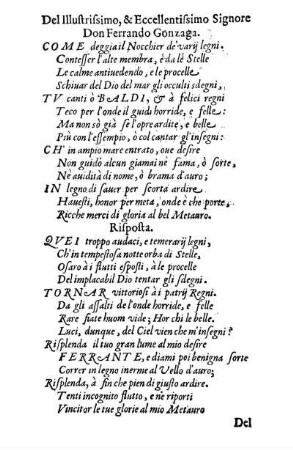 Del Illustrissimo, & Eccellentissimo Signore
Don Ferrando Gonzaga.
COME deggia il Nocchier de varij legni.
Contesser l'alte membra, è da lè Stelle
Le calme antivedendo, e le procelle
Schiuar del Dio del mar gli occulti sdegni,
TV canti ò BALDI, & à felici regni
Teco per l'onde il guidi horride, e felle:
Ma non sò già se l'opre ardite, e belle
Più con l'essempio, ò col cantar gl'insegni:
CH' in ampio mare entrato, oue desire
Non guidò alcun giamai nè fama, ò sorte,
Nè auidità di nome, ò brama d'auro;
IN legno di sauer per scorta ardire
Hauesti, honor per meta, onde è che porte,
Ricche merci di gloria al bel Metauro.
Risposta.
QVEI troppo audaci, e temerarij legni,
Ch'in tempestosa notte orba di Stelle,
Osaro à i flutti esposti, à le procelle
Del implacabil Dio tentar gli sdegni.
TORNAR vittoriosi à i patrij Regni.
Da gli assalti de l'onde horride, e felle
Rare fiate huom vide; Hor chi le belle.
Luci, dunque, del Ciel vien che m'insegni?
Risplenda il tuo gran lume al mio desire
FERRANTE, e diami poi benigna sorte
Correr in legno inerme al Vello d'auro;
Risplenda, à fin che pien di giusto ardire.
Tenti incognito flutto, e ne riporti
Vincitor le tue glorie al mio Metauro
Del